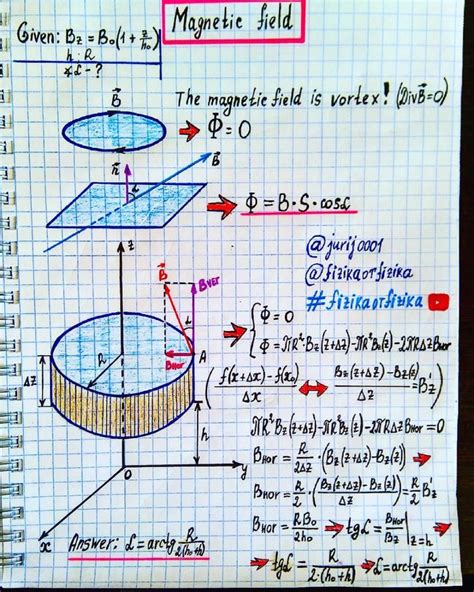 Magnetic field
Given: B_z = B_0(1 + z/h_0)
h; R
∠α - ?
B⃗
The magnetic field is vortex! (Div B⃗ = 0)
Φ = 0
n⃗
α
B⃗
Φ = B·S·cosα
z
@jurij0001
@fizikaotfizika
#fizikaotfizika
B⃗
B_ver
α
B_hor
A
R
Δz
h
O
y
x
Φ = 0
Φ = πR²·B_z(z+Δz) - πR²B_z(z) - 2πRΔzB_hor
(f(x+Δx) - f(x_0))/Δx ↔ (B_z(z+Δz) - B_z(z))/Δz = B'_z
πR²B_z(z+Δz) - πR²B_z(z) - 2πRΔzB_hor = 0
B_hor = R/(2Δz)·(B_z(z+Δz) - B_z(z))
B_hor = R/2·((B_z(z+Δz) - B_z(z))/Δz) = R/2 B'_z
B_hor = RB_0/(2h_0) → tgα = B_hor/B_z |z=h
tgα = R/(2·(h_0+h)) → α = arctg R/(2(h_0+h))
Answer: α = arctg R/(2(h_0+h))